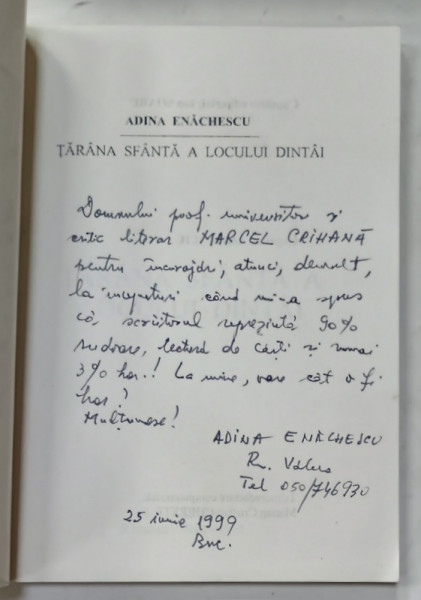 ADINA ENĂCHESCU
ȚĂRÂNA SFÂNTĂ A LOCULUI DINTÂI
Domnului prof. universitar și
critic literar MARCEL CRIHANĂ
pentru încurajări, atunci, demult,
la începuturi când mi-a spus
că, scriitorul reprezintă 90%
sudoare, lectură de cărți și numai
3% har.! La mine, oare cât o fi
har?
Mulțumesc!
ADINA ENĂCHESCU
Rm. Vâlcea
Tel 050/746930
25 iunie 1999
Buc.